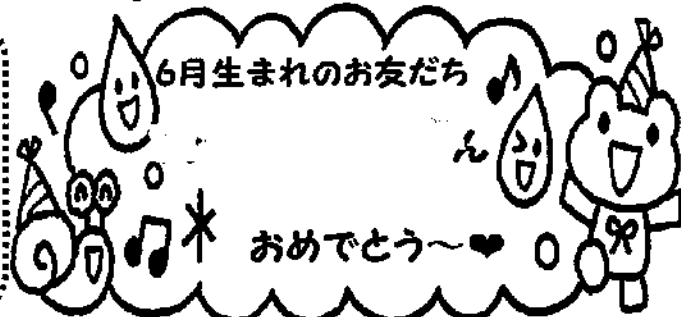 6月生まれのお友だち
ん
おめでとう～❤